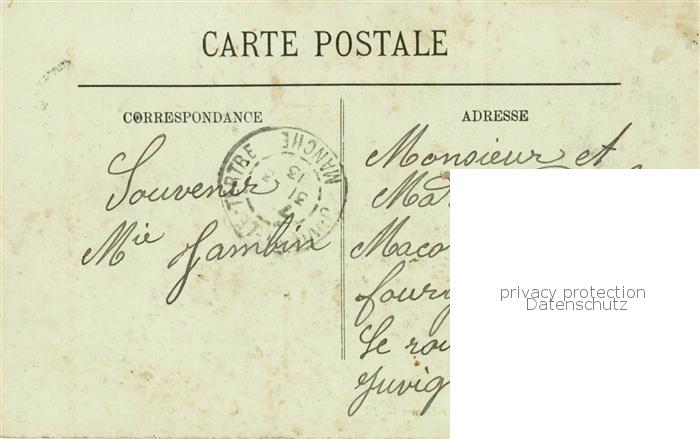 CARTE POSTALE
CORRESPONDANCE
ADRESSE
Souvenir
Mie Jambin
LE-TERTRE
MANCHE
31
13
Monsieur et
Mad
Maço
Le rou
Juvig
privacy protection
Datenschutz